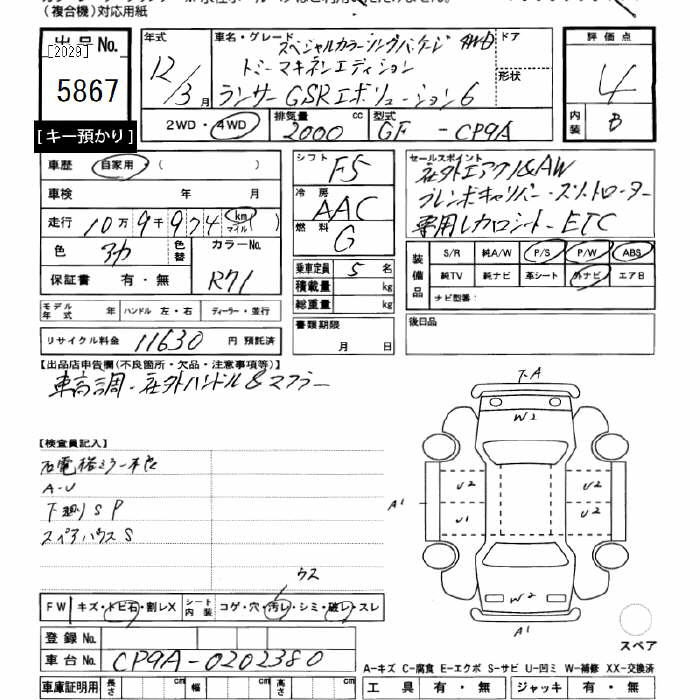 (複合機)対応用紙
出品No.
[2029]
5867
[キー預かり]
年式
12/3月
車名・グレード
スペシャルカラーリングパッケージ 4WD
トミーマキネンエディション
ランサーGSRエボリューション6
ドア
形状
評価点
4
内装
B
2WD・4WD
排気量
2000 cc
型式
GF - CP9A
車歴
自家用
( )
車検 年 月
走行 10万9千974 km マイル
色 赤
色替
カラーNo.
R71
保証書 有・無
シフト F5
冷房 AAC
燃料 G
乗車定員 5 名
積載量 kg
総重量 kg
セールスポイント
社外エアクリ&AW
ブレンボキャリパー・スリットローター
専用レカロシート・ETC
装備品
S/R 純A/W P/S P/W ABS
純TV 純ナビ 革シート 外ナビ エアB
ナビ型番:
モデル年式 年 ハンドル 左・右 ディーラー・並行
リサイクル料金 11630 円 預託済
書類期限
月 日
後日品
【出品店申告欄(不良箇所・欠品・注意事項等)】
車高調・社外ハンドル&マフラー
【検査員記入】
右電格ミラー不良
A-U
下廻りSP
スペアハウスS
ウス
FW キズ・トビ石・割レX
シート内装 コゲ・穴・汚レ・シミ・破レ・スレ
登録No.
車台No. CP9A-0202380
車庫証明用 長さ cm 幅 cm 高さ cm
下A
W2
A1
U2
U2
U1
U2
W2
A1
スペア
A-キズ C-腐食 E-エクボ S-サビ U-凹ミ W-補修 XX-交換済
工具 有・無 ジャッキ 有・無